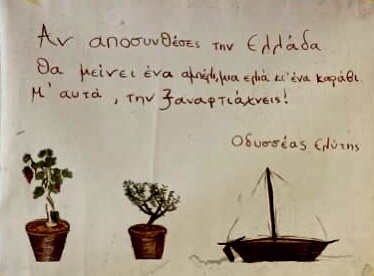 Αν αποσυνθέσες την Ελλάδα
Θα μείνει ένα αμπέλι, μια ελιά κι' ένα καράβι.
Μ' αυτά, την ξαναφτιάχνεις!
Οδυσσέας Ελύτης